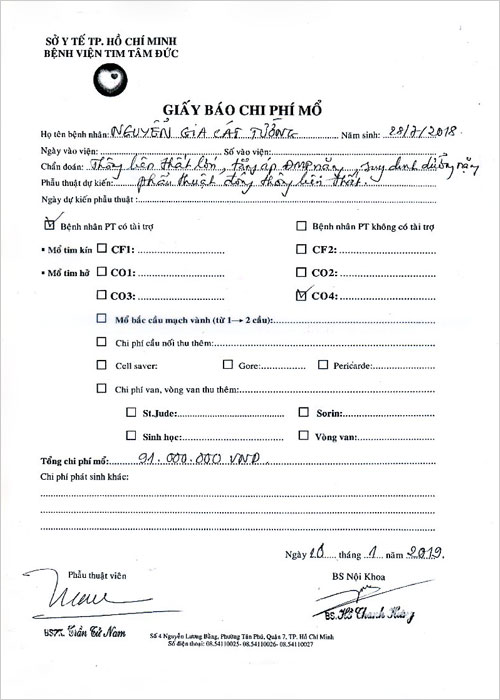 SỞ Y TẾ TP. HỒ CHÍ MINH
BỆNH VIỆN TIM TÂM ĐỨC
GIẤY BÁO CHI PHÍ MỔ
Họ tên bệnh nhân: NGUYỄN GIA CÁT TƯỜNG Năm sinh: 28/7/2018
Ngày vào viện: Số vào viện:
Chẩn đoán: Thông liên thất lớn, tăng áp ĐMP nặng, suy dinh dưỡng nặng
Phẫu thuật dự kiến: phẫu thuật đóng thông liên thất.
Ngày dự kiến phẫu thuật :
Bệnh nhân PT có tài trợ Bệnh nhân PT không có tài trợ
• Mổ tim kín CF1: CF2:
• Mổ tim hở CO1: CO2:
CO3: CO4:
Mổ bắc cầu mạch vành (từ 1→ 2 cầu):
Chi phí cầu nối thu thêm:
Cell saver: Gore: Pericarde:
Chi phí van, vòng van thu thêm:
St.Jude: Sorin:
Sinh học: Vòng van:
Tổng chi phí mổ: 91.000.000 VNĐ.
Chi phí phát sinh khác:
Ngày 10 tháng 1 năm 2019.
Phẫu thuật viên BS Nội Khoa
Trần Từ Nam BS.
Số 4 Nguyễn Lương Bằng, Phường Tân Phú, Quận 7, TP. Hồ Chí Minh
Số điện thoại: 08.54110025- 08.54110026- 08.54110027